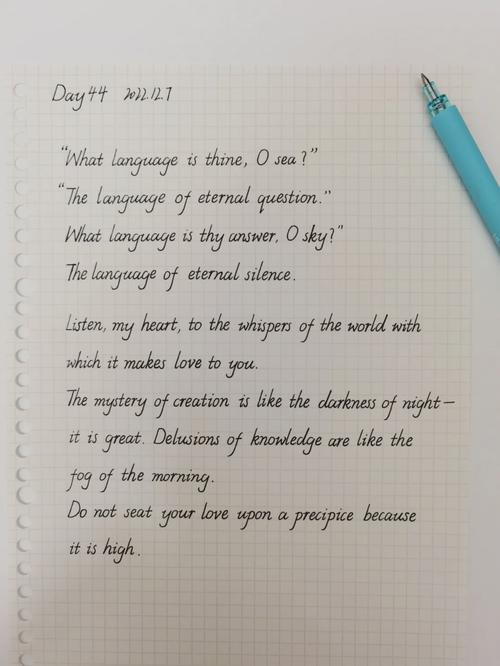 Day 44 2022.12.7
"What language is thine, O sea?"
"The language of eternal question."
What language is thy answer, O sky?"
The language of eternal silence.
Listen, my heart, to the whispers of the world with
which it makes love to you.
The mystery of creation is like the darkness of night—
it is great. Delusions of knowledge are like the
fog of the morning.
Do not seat your love upon a precipice because
it is high.